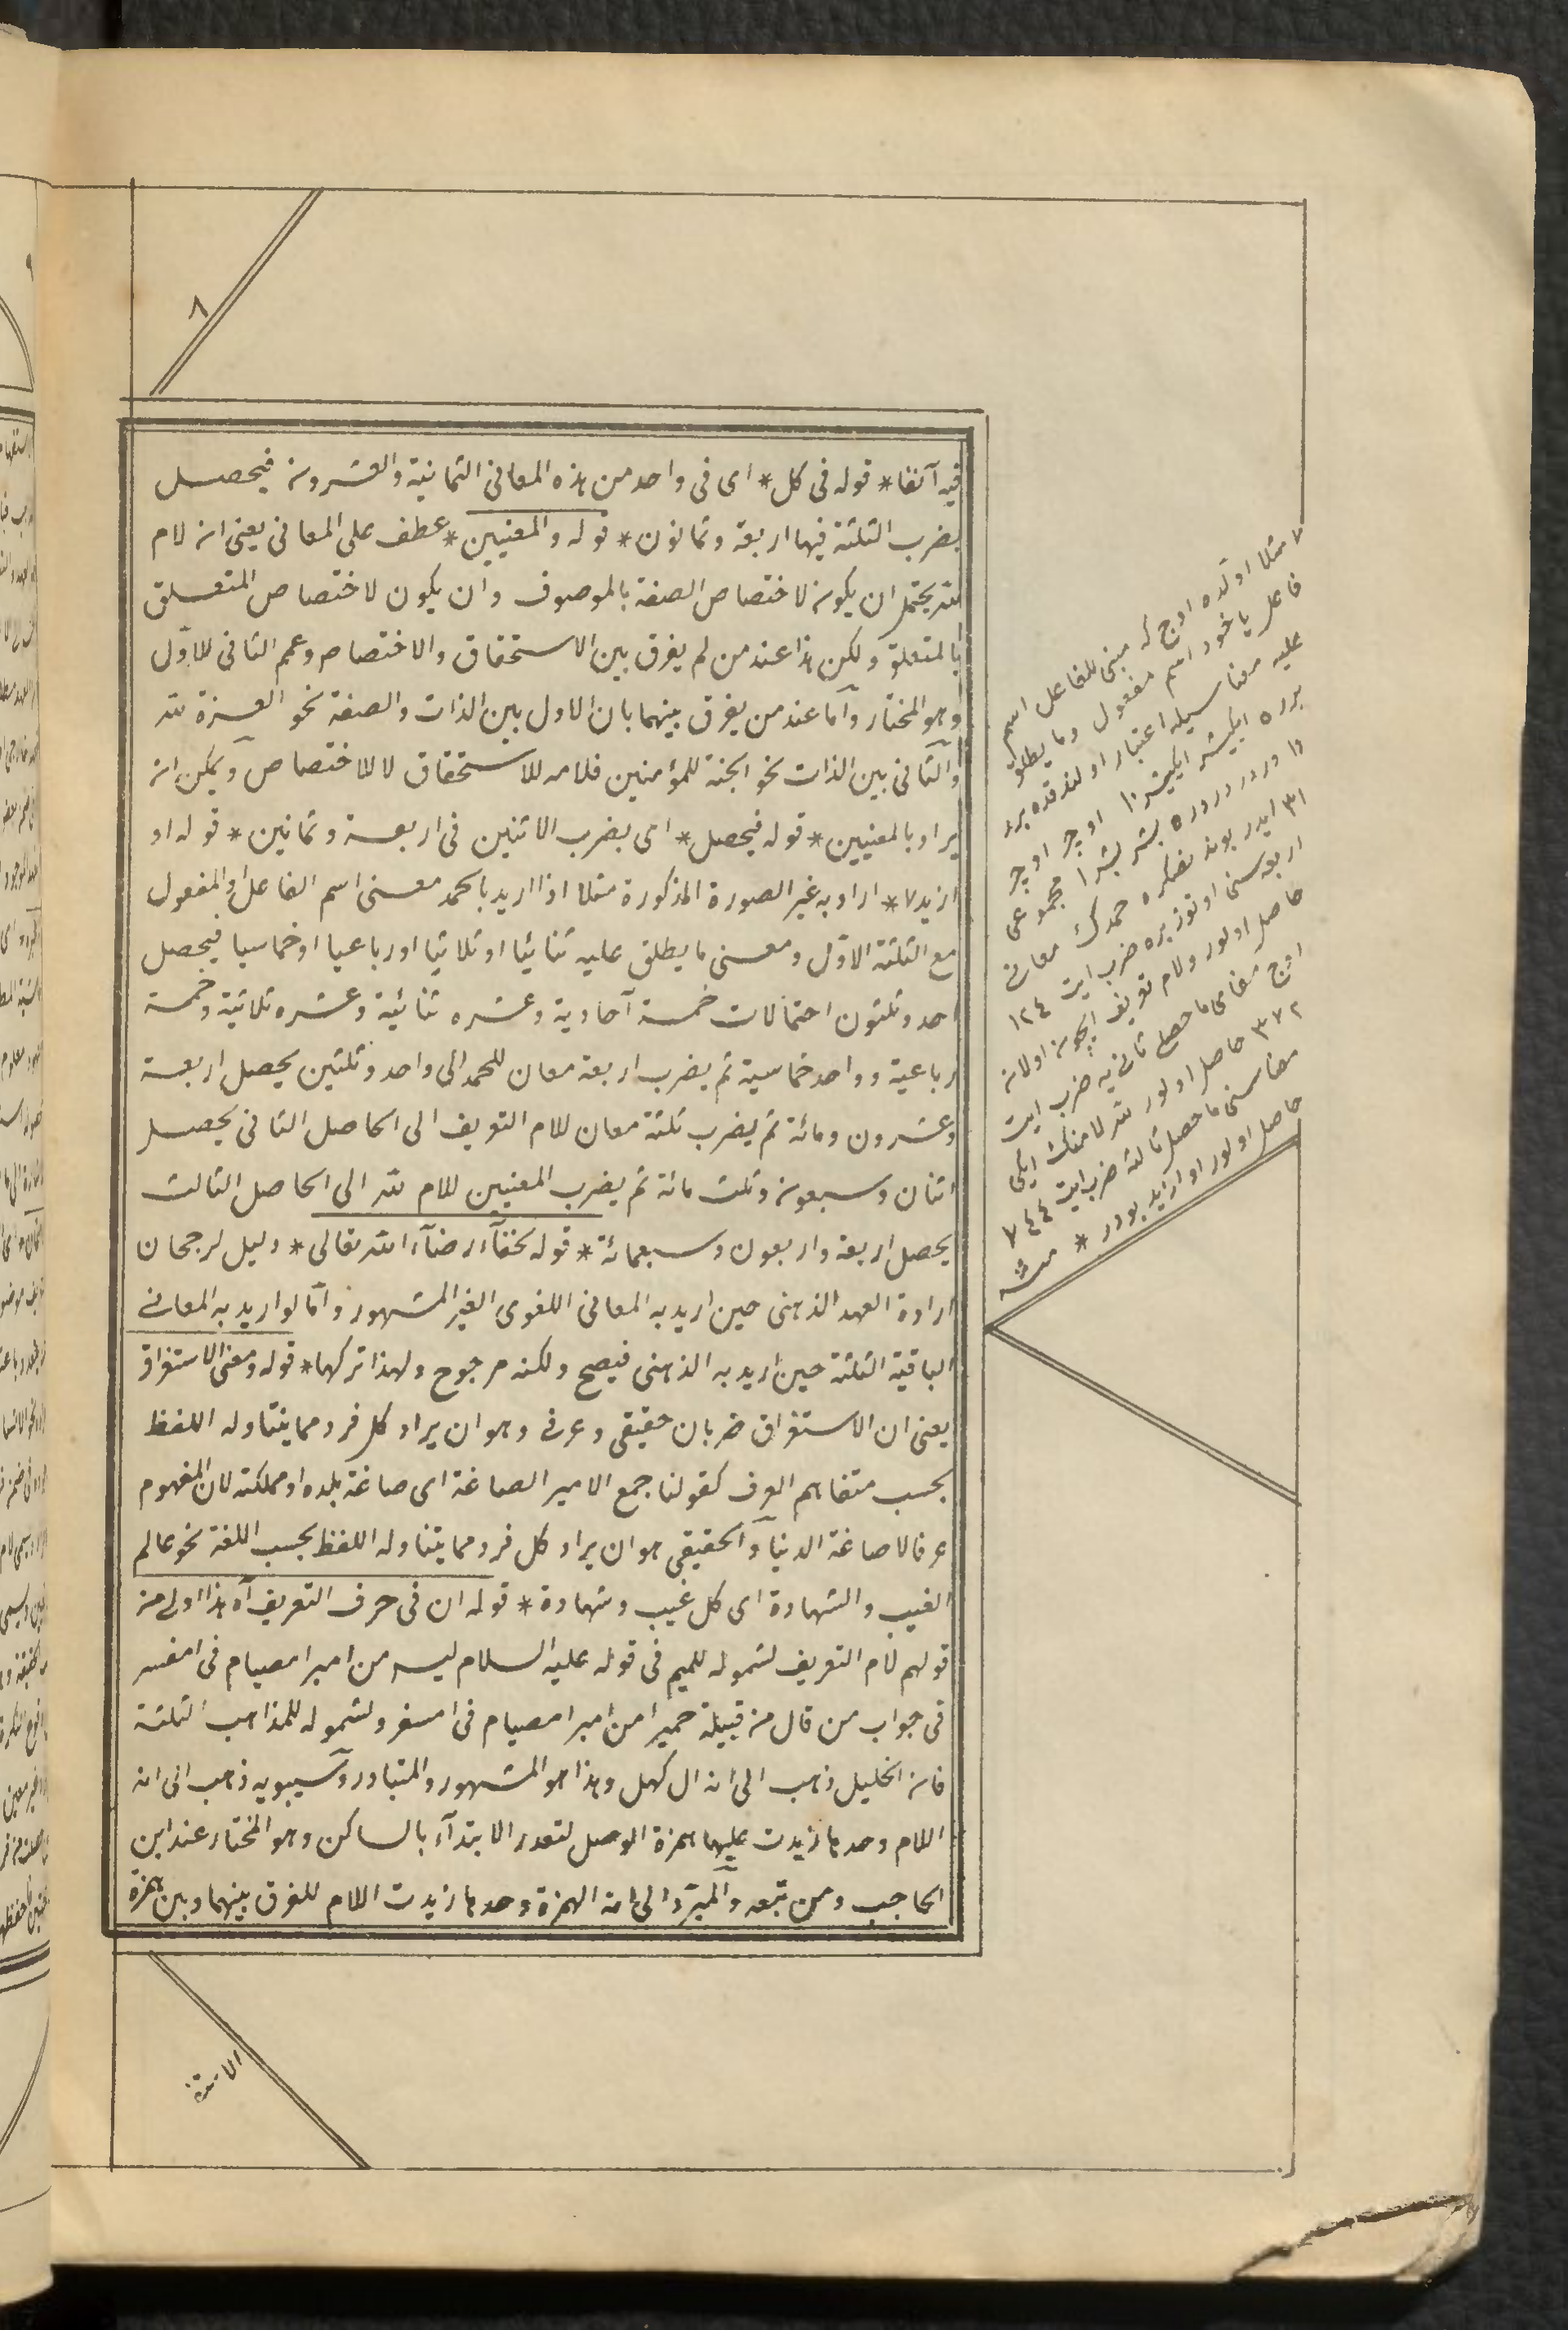 ٨
فيه آنفا * قوله فى كل * اى فى واحد من هذه المعانى الثمانية والعشرون فيحصل
بضرب الثلثة فيها اربعة وثمانون * قوله والمعنيين * عطف على المعانى يعنى ان لام
لله يحتمل ان يكون لاختصاص الصفة بالموصوف وان يكون لاختصاص المتعلق
بالمتعلق ولكن هذا عند من لم يفرق بين الاستحقاق والاختصاص وعمم الثانى للاول
وهو المختار وآما عند من يفرق بينهما بان الاول بين الذات والصفة نحو العزة لله
والثانى بين الذات نحو الجنة للمؤمنين فلامه للاستحقاق لا للاختصاص ويمكن ان
يراد بالمعنيين * قوله فيحصل * اى بضرب الاثنين فى اربعة وثمانين * قوله او
ازيد ٧ * اراد به غير الصورة المذكورة مثلا اذا اريد بالحمد معنى اسم الفاعل او المفعول
مع الثلثة الاول ومعنى ما يطلق عليه ثنائيا او ثلاثيا او رباعيا او خماسيا فيحصل
احد وثلثون احتمالات خمسة آحادية وعشره ثنائية وعشره ثلاثية وخمسة
رباعية وواحد خماسية ثم يضرب اربعة معان للحمد الى واحد وثلثين يحصل اربعة
وعشرون ومائة ثم يضرب ثلثة معان للام التعريف الى الحاصل الثانى يحصل
اثنان وسبعون وثلث مائة ثم يضرب المعنيين للام لله الى الحاصل الثالث
يحصل اربعة واربعون وسبعمائة * قوله لخفآء رضآء الله تعالى * دليل لرجحان
ارادة العهد الذهنى حين اريد به المعانى اللغوى الغير المشهور وآما لو اريد به المعانى
الباقية الثلثة حين اريد به الذهنى فيصح ولكنه مرجوح ولهذا تركها * قوله ومعنى الاستغراق
يعنى ان الاستغراق ضربان حقيقى وعرفى وهو ان يراد كل فرد مما يتناوله اللفظ
بحسب متفاهم العرف كقولنا جمع الامير الصاغة اى صاغة بلده او مملكته لان المفهوم
عرفا لا صاغة الدنيا وآلحقيقى هو ان يراد كل فرد مما يتناوله اللفظ بحسب اللغة نحو عالم
الغيب والشهادة اى كل غيب وشهادة * قوله ان فى حرف التعريف آه هذا اولى من
قولهم لام التعريف لشموله للميم فى قوله عليه السلام ليس من امبر امصيام فى امسفر
فى جواب من قال من قبيلة حمير امن امبر امصيام فى امسفر ولشموله للمذاهب الثلثة
فان الخليل ذهب الى ان ال كهل وهذا هو المشهور والمتبادر وسيبويه ذهب الى ان
اللام وحدها زيدت عليها همزة الوصل لتعدر الابتدآء بالساكن وهو المختار عند ابن
الحاجب ومن تبعه والمبرّد الى ان الهمزة وحدها زيدت اللام للفرق بينهما وبين همزة
٧ مثلا اولده اوچ كه مبنى للفاعل اسم
فاعل ياخود اسم مفعول وما يطلق
عليه معناسيله اعتبار اولندقده برر
برره ايكيشر ايكيشر ١٠ اوچر اوچر
١٠ دردر دردره بشر بشر ١ مجموعى
٣١ ايدر بوند نصكره حمدك معانى
اربعه سنى اوتوز بره ضرب ايت ١٢٤
حاصل اولور ولام تعريف ايچون اولان
اوچ معناى ما حصل ثانى يه ضرب ايت
٣٧٢ حاصل اولور لله لامنك ايكى
معناسنى ما حصل ثالثه ضرب ايت ٧٤٤
حاصل اولور او ازيد بودر * منه